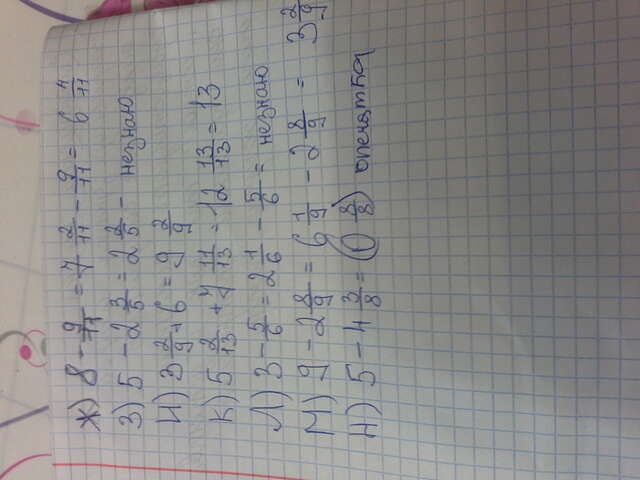 Ж) 8 - 9/11 = 7 2/11 - 9/11 = 6 4/11
З) 5 - 2 3/5 = 2 2/5 - незнаю
И) 3 2/9 + 6 = 9 2/9
К) 5 2/13 + 7 11/13 = 12 13/13 = 13
Л) 3 - 5/6 = 2 1/6 - 5/6 = незнаю
М) 9 - 2 8/9 = 6 1/9 - 2 8/9 = 3 2/9
Н) 5 - 4 3/8 = (0 8/8) опечатка